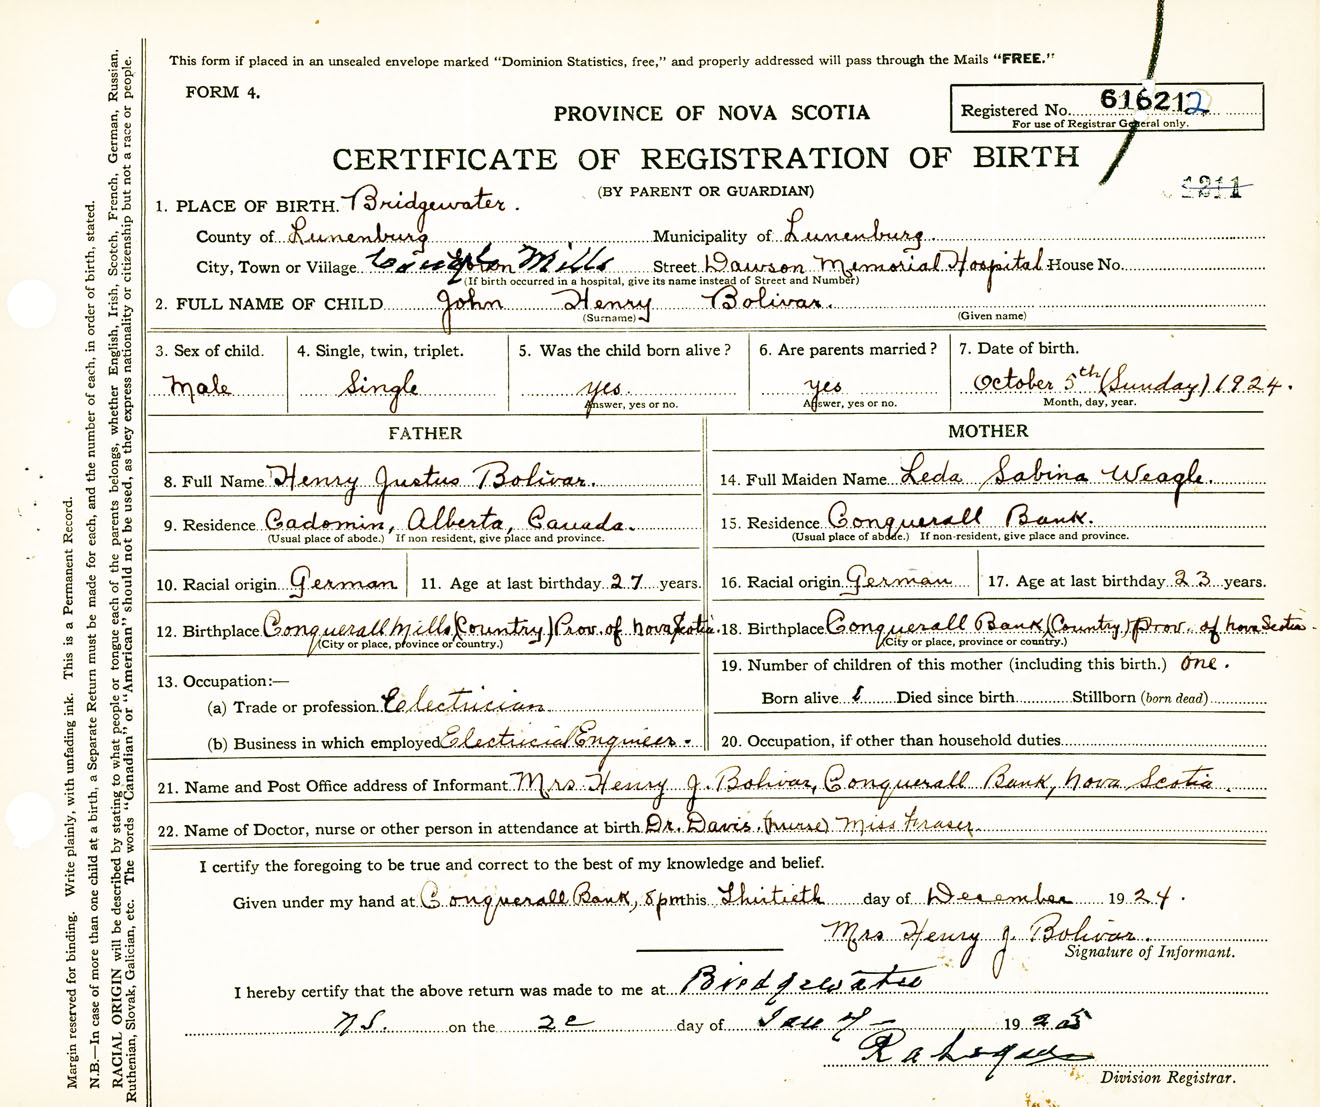 This form if placed in an unsealed envelope marked "Dominion Statistics, free," and properly addressed will pass through the Mails "FREE."
FORM 4.
PROVINCE OF NOVA SCOTIA
Registered No. 616212
For use of Registrar General only.
CERTIFICATE OF REGISTRATION OF BIRTH
(BY PARENT OR GUARDIAN)
1211
1. PLACE OF BIRTH. Bridgewater.
County of Lunenburg Municipality of Lunenburg.
City, Town or Village Mills Street Dawson Memorial Hospital House No.
(If birth occurred in a hospital, give its name instead of Street and Number)
2. FULL NAME OF CHILD John Henry Bolivar.
(Surname) (Given name)
3. Sex of child. 4. Single, twin, triplet. 5. Was the child born alive? 6. Are parents married? 7. Date of birth.
Male Single yes. yes October 5th (Sunday) 1924.
Answer, yes or no. Answer, yes or no. Month, day, year.
FATHER MOTHER
8. Full Name Henry Justus Bolivar. 14. Full Maiden Name Leda Sabina Weagle.
9. Residence Cadomin, Alberta, Canada. 15. Residence Conquerall Bank.
(Usual place of abode.) If non resident, give place and province. (Usual place of abode.) If non-resident, give place and province.
10. Racial origin German 11. Age at last birthday 27 years. 16. Racial origin German 17. Age at last birthday 23 years.
12. Birthplace Conquerall Mills (Country) Prov. of Nova Scotia. 18. Birthplace Conquerall Bank (Country) Prov. of Nova Scotia.
(City or place, province or country.) (City or place, province or country.)
13. Occupation:— 19. Number of children of this mother (including this birth.) one.
(a) Trade or profession Electrician. Born alive 1 Died since birth Stillborn (born dead)
(b) Business in which employed Electricial Engineer. 20. Occupation, if other than household duties
21. Name and Post Office address of Informant Mrs. Henry J. Bolivar, Conquerall Bank, Nova Scotia.
22. Name of Doctor, nurse or other person in attendance at birth Dr. Davis. (nurse) Miss Fraser.
I certify the foregoing to be true and correct to the best of my knowledge and belief.
Given under my hand at Conquerall Bank, 8pm this Thirtieth day of December 1924.
Mrs Henry J. Bolivar.
Signature of Informant.
I hereby certify that the above return was made to me at Bridgewater
NS. on the day of Jany 1925
Division Registrar.
Margin reserved for binding. Write plainly, with unfading ink. This is a Permanent Record.
N.B.—In case of more than one child at a birth, a Separate Return must be made for each, and the number of each, in order of birth, stated.
RACIAL ORIGIN will be described by stating to what people or tongue each of the parents belongs, whether English, Irish, Scotch, French, German, Russian,
Ruthenian, Slovak, Galician, etc. The words "Canadian" or "American" should not be used, as they express nationality or citizenship but not a race or people.